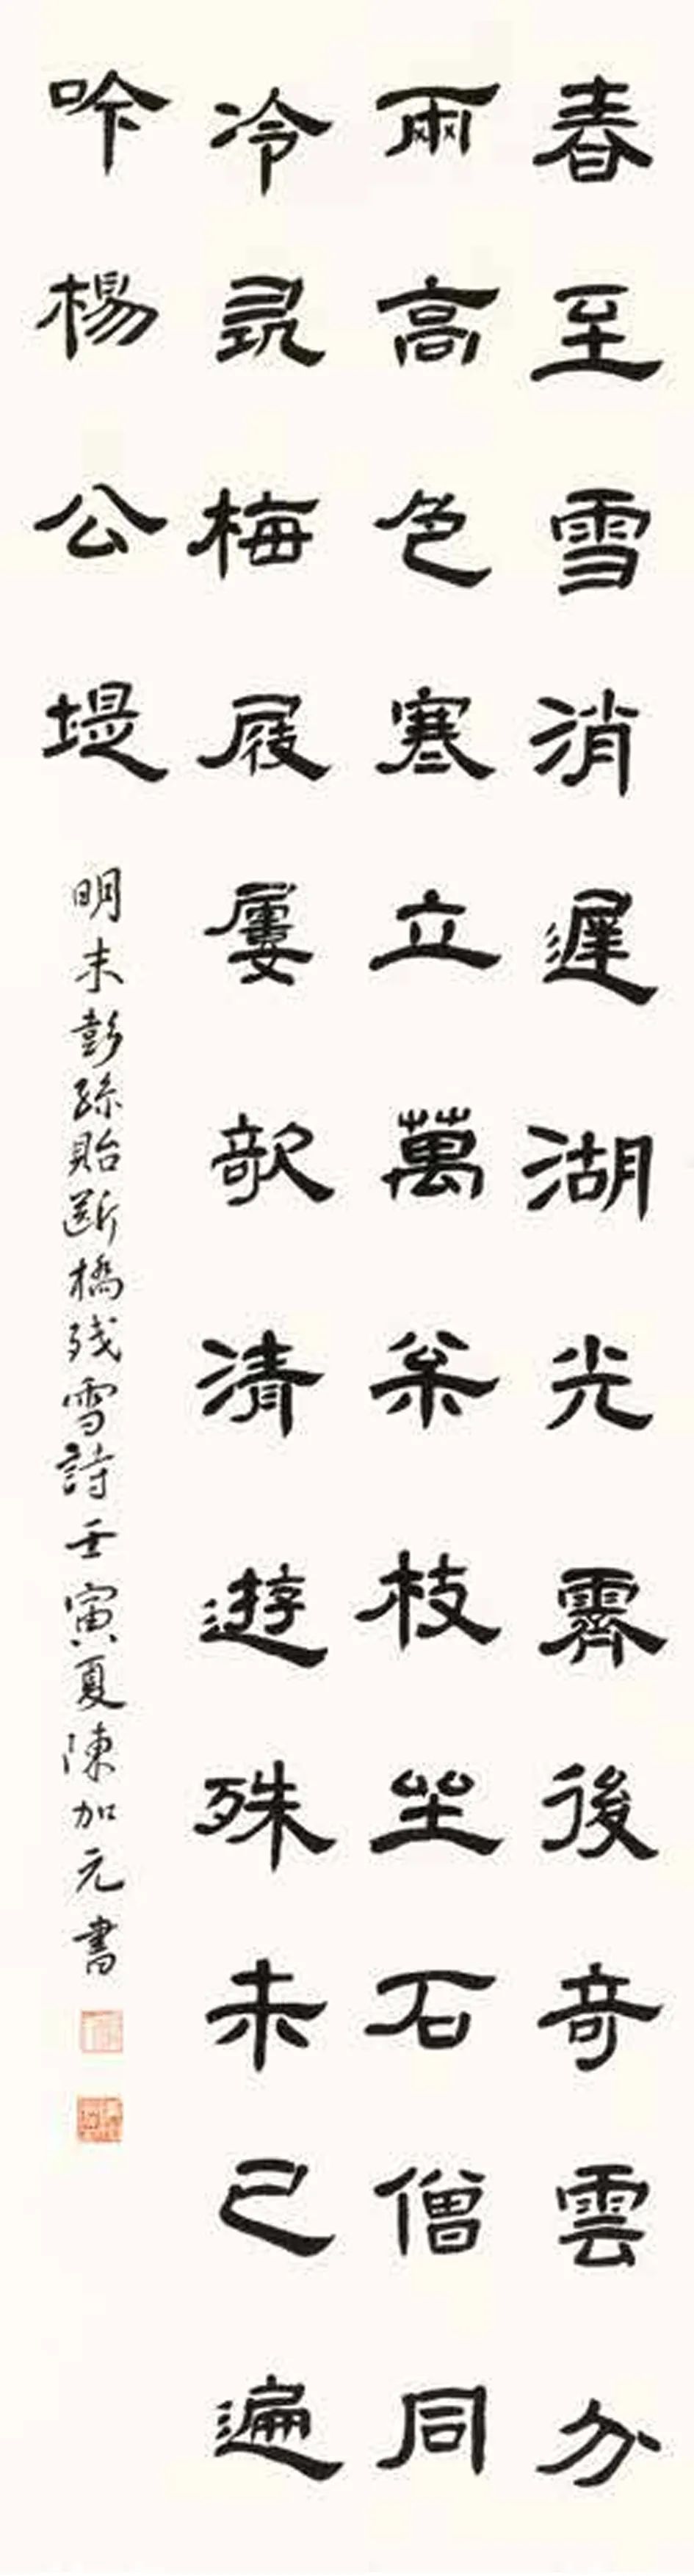 春至雪消遲湖光霽後奇雲分
兩高色寒立萬条枝坐石僧同
冷尋梅屐屢欹清遊殊未已遍
吟楊公堤
明末彭孫貽断橋残雪詩壬寅夏陳加元書